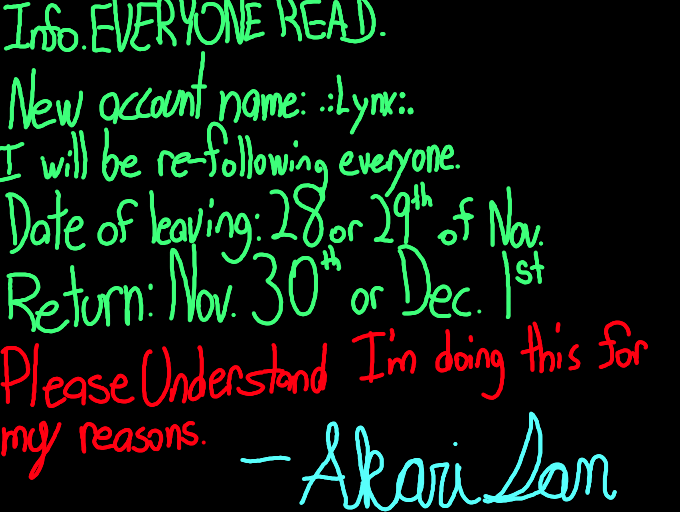 Info. EVERYONE READ.
New account name: .:Lynx:.
I will be re-following everyone.
Date of leaving: 28 or 29th of Nov.
Return: Nov. 30th or Dec. 1st
Please Understand I'm doing this for
my reasons.
- Akari San